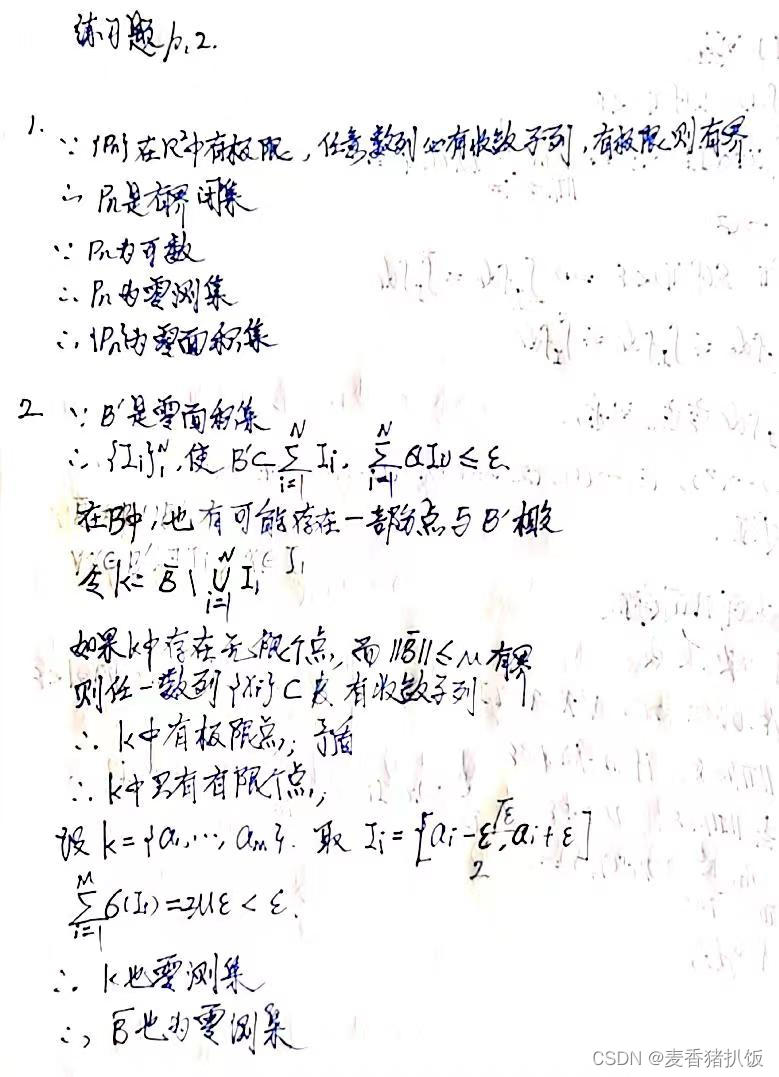 练习题10.2.
1. ∵ {Pn}在R²中有极限，任意数列必有收敛子列，有极限则有界.
∴ Pn是有界闭集
∵ Pn为可数
∴ Pn为零测集
∴ {Pn}为零面积集
2 ∵ B'是零面积集
∴ {Ii}₁ᴺ, 使 B'⊂ ∑_{i=1}^{N} Ii, ∑_{i=1}^{N} σ(Ii) ≤ ε.
在B中，也有可能存在一部份点与B'相
令 K= B \ ⋃_{i=1}^{N} Ii
如果K中存在无限个点, 而 ||B̅|| ≤ M 有界
则任一数列 {xi} ⊂ 有收敛子列
∴ K中有极限点, 矛盾
∴ K中只有有限个点,
设 K={a₁,…, aₘ}. 取 Ii = [ai - ε, ai + ε] √ε 2
∑_{i=1}^{M} σ(Ii) = 2Mε < ε.
∴ K也零测集
∴ B̅也为零测集
CSDN @麦香猪扒饭